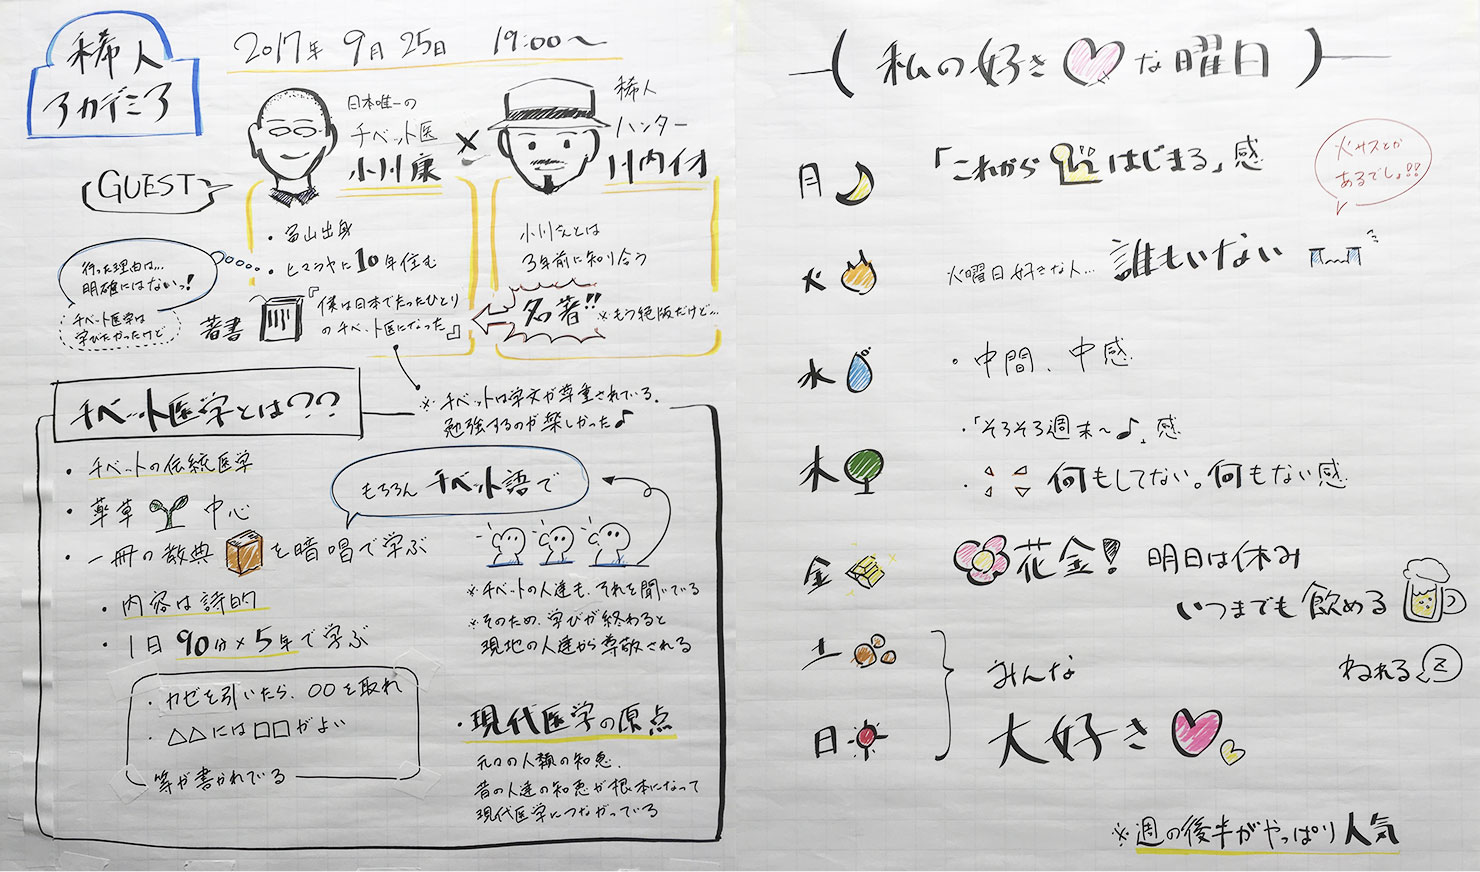 稀人
アカデミア
2017年 9月 25日 19:00〜
GUEST
日本唯一の
チベット医
小川 康
×
稀人
ハンター
川内イオ
・富山出身
・ヒマラヤに10年住む
行った理由は…
明確にはないっ!
チベット医学は
学びたかったけど
著書
『僕は日本でたったひとり
のチベット医になった』
小川さんとは
3年前に知り合う
名著!! ※もう絶版だけど…
※チベットは学文が尊重されている。
勉強するのが楽しかった♪
チベット医学とは??
・チベットの伝統医学
・薬草 中心
・一冊の教典 を暗唱で学ぶ
・内容は詩的
・1日 90分×5年で学ぶ
・カゼを引いたら、○○を取れ
・△△には□□がよい
等が書かれている
もちろん チベット語で
※チベットの人達も、それを聞いている
※そのため、学びが終わると
現地の人達から尊敬される
・現代医学の原点
元々の人類の知恵、
昔の人達の知恵が根本になって
現代医学につながっている
(私の好き♡な曜日)
月 「これから はじまる」感
火サスとか
あるでしょ!!
火 火曜日好きな人… 誰もいない
水 ・中間、中感
・「そろそろ週末〜♪」感
木 ・何もしてない。何もない感
金 花金! 明日は休み
いつまでも飲める
土 みんな ねれる Z
日 大好き
※週の後半がやっぱり人気